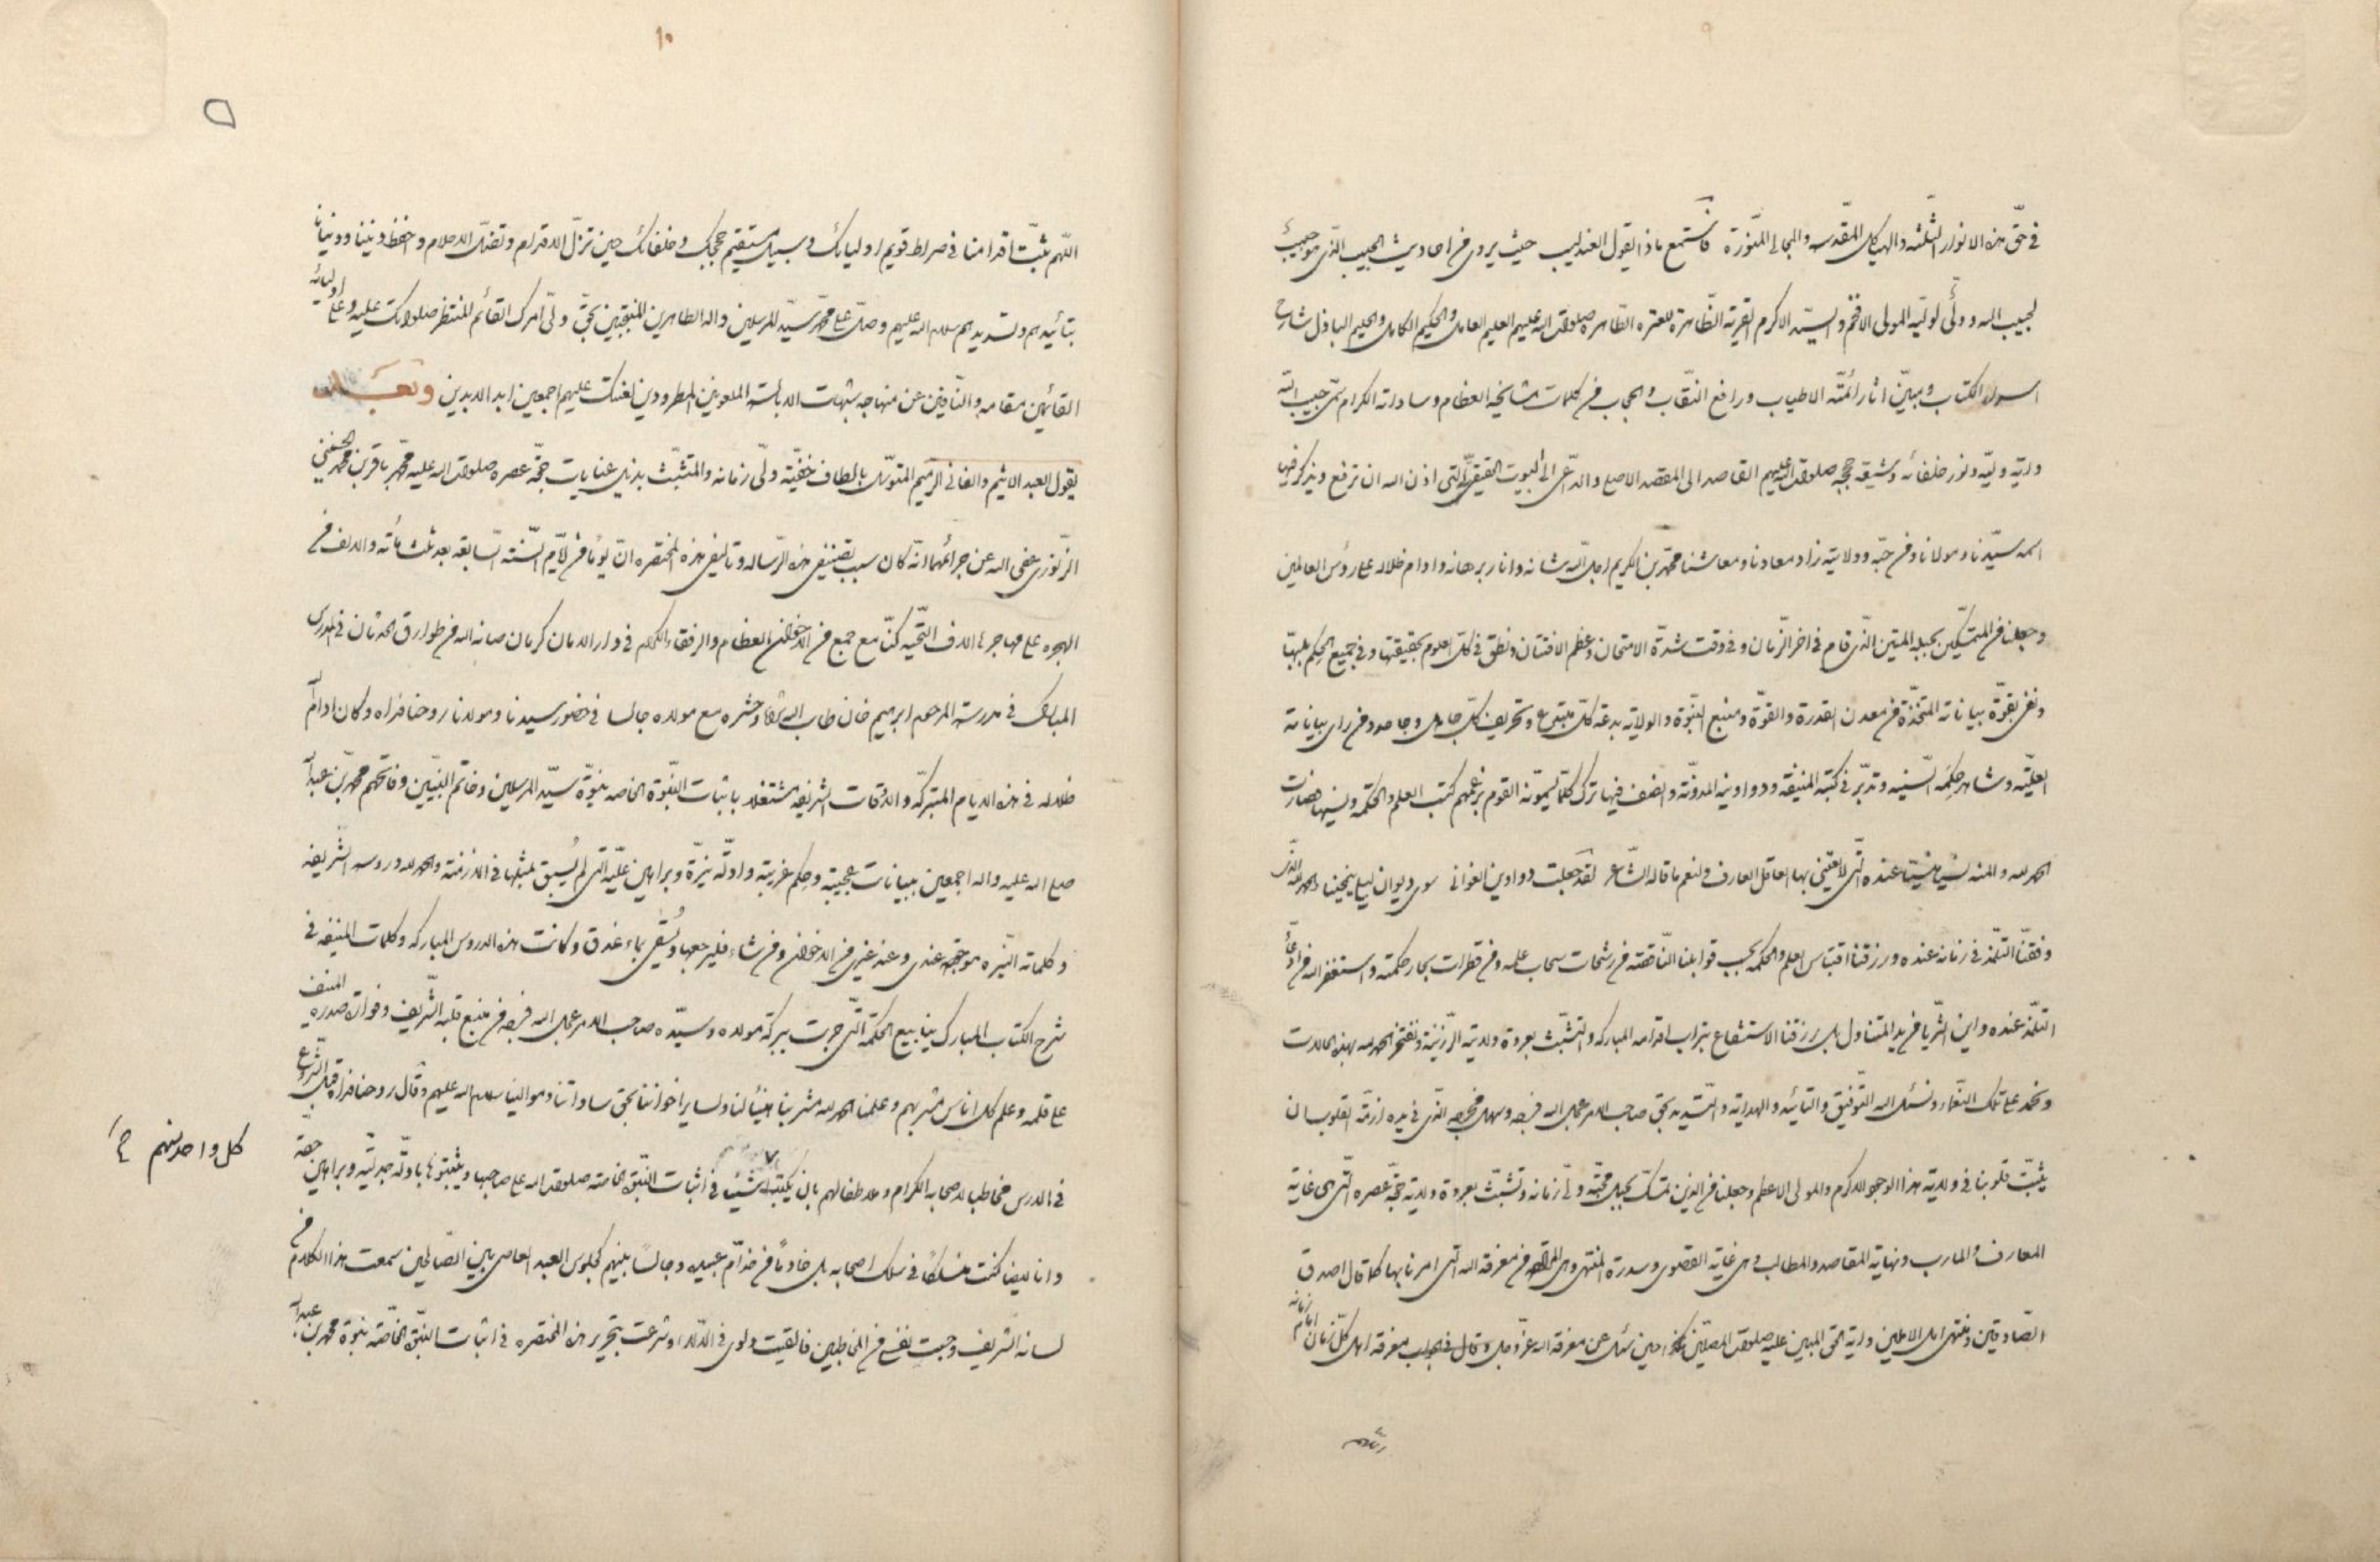 في حقّ هذه الانوار الثلثه والهياكل المقّدسه والمجالي المنّورة فاستمع ماذا يقول العندليب حيث يروى من احاديث الحبيب الذّى هو حبيبٌ
لحبيب الله وولىٌّ لوليّه المولى الافخم والسيّد الاكرم القرية الظّاهرة للعترة الطّاهرة صلوات الله عليهم العليم العامل والحكيم الكامل والحليم الباذل شارح
اسرار الكتاب ومبيّن اثار ائمّته الاطياب ورافع النّقاب والحجاب من كلمات مشايخه العظام وساداته الكرام سمّى حبيب الله
واية وليّه ونور خلفائه وشيعة حججه صلوات الله عليهم القاصد الى المقصد الاصلى والدّاعى الى البيوت الحقيقىّ الّتى اذن الله ان ترفع ويذكر فيها
اسمه سيّدنا ومولانا ومن حبّه وولايته زاد معادنا ومعاشنا محمّد بن الكريم اجلّ الله شانه وانار برهانه وادام ظلاله على رؤس العالمين
وجعلنا من المتمسّكين بحبله المتين الذّى قام في اخر الزّمان وفي وقت شدّة الامتحان وعظم الافتتان ونطق في كلّ العلوم بحقيقتها وفي جميع الحِكم بلبّها
ونفى بقوّة بياناته المتّخذة من معدن القدرة والقوّة ومنبع النبّوة والولاية بدعة كلّ مبتدع وتحريف كلّ جاهل وجاحد ومن راى بياناته
العليّه وشاهد حِكمه السّنيه وتدبّر في كتبه المنيفة ودواوينه المدوّنة وانصف فيها ترك كلّما يسمّونه القوم بزعمهم كتب العلم والحكمه وينسيها فصارت
الحمد لله والمنه نسياً منسيّاً عنده الّتى لا يعتني بها العاقل العارف ولنعم ما قاله الشّاعر لقد جعلت دواوين الغوانى سوى ديوان ليلى ينمحينا والحمد لله الّذى
وفقنّا التلّمذ في زمانه عنده ورزقنا اقتباس العلم والحكمه بحسب قوابلنا النّاقصة من رشحات سحاب علمه ومن قطرات بحار حكمته واستغفر الله من ادعّآء
التلّمذ عنده واين الثرّيا من يد المتناول بل رزقنا الاستشفاع بتراب اقدامه المباركه والتشبّث بعروة ولايته الرّزينة ونفتخر الحمد لله بهذه الحالات
ونحمد على تلك النعّماء ونسئل الله التّوفيق والتائيد والهداية والتسّديد بحق صاحب الامر عجل الله فرجه وسهل مخرجه الّذى في يده ازمّة القلوب ان
يثبّت قلوبنا في ولاية هذا الوجود الاكرم والمولى الاعظم وجعلنا من الّذين تمسّك بحبل محبّة ولّى زمانه وتشبّث بعروة ولاية حجّة عصره الّتى هى غاية
المعارف والمارب ونهاية المقاصد والمطالب وهى غاية القصوى وسدرة المنتهى وهى المراد من معرفة الله التى امرنا بها كلها قال اصدق
الصّادقين ومنتهى امل الاملين واية الحق المبين عليه صلوات المصلّين حين سئل عن معرفة الله عزّ وجل وقال في الجواب معرفة اهل كلّ زمان امام زمانه
١٠
اللّهم ثبّت اقدامنا في صراط قويم اوليائك وسبيل مستقيم حججك وخلفائك حين تزلّ الاقدام وتضلّ الاحلام واحفظ ديننا ودنيانا
بتأييدهم وتسديدهم سلام الله عليهم وصلّ على محمّد سيّد المرسلين واله الطاهرين المنتجبين بحقّ ولّى امرك القائم المنتظر صلواتك عليه وعلى اوليائه
القائمين مقامه والنّافين عن منهاجه شبهات الابالسة الملعونين المطرودين لعنتك عليهم اجمعين ابد الابدين وبعــد
يقول العبد الاثيم والفاني الرميم المتوسّل بالطاف خفّية ولّى زمانه والمتشبّث بذيل عنايات حجّة عصره صلوات الله عليه محمّد باقر بن محمّد الحسيني
الزّنوزى عفى الله عن جرائمهما انّه كان سبب تصنيفى هذه الرّساله وتاليفى هذه المختصره انّ يوماً من ايّام السّنة السّابعه بعد ثلث مأئة والالف من
الهجره على مهاجرها الاف التحّيه كنّا مع جمع من الاخوان العظام والرفقاء الكرام في دار الامان كرمان صانه الله من طوارق الحدثان في الدرس
المبارك في مدرسة المرحوم ابرهيم خان طاب الله ثراه وحشره مع مولاه جالسا في حضور سيدنا ومولانا روحنا فداه وكان ادام الله
ظلاله في هذه الايام المتبرّكه والاوقات الشريفه مشتغلا باثبات النّبوة الخاصه بنبوّة سيّد المرسلين وخاتم النبيّين وفاتحهم محمّد بن عبد الله
صلى الله عليه واله اجمعين ببيانات عجيبة وحِكم غريبة وادلّة نيّرة وبراهين عليّة الّتى لم يُسبق بمثلها في الازمنة والحمد لله دروسه الشّريفه
وكلماته النيّره موجوده عندى وعند غيرى من الاخوان ومن شاء فليرجعها ويُسقى بماء غدق وكانت هذه الدروس المباركه وكلمات المنيفه في
شرح الكتاب المبارك ينابيع الحكمة الّتى جرت ببركة مولاه وسيّده صاحب الامر عجل الله فرجه من منبع قلبه الشّريف وفوارة صدره المنيف
على قلمه وعلم كل اناس مشربهم وعلمنا الحمد لله مشربنا هنيئاً لنا ولساير اخواننا بحق ساداتنا وموالينا سلام الله عليهم وقال روحنا فداه قبل الشّروع
في الدرس مخاطبا لاصحابه الكرام وملاطفا لهم بان يكتب شيئاً في اثبات النّبوة الخاصة صلوات الله على صاحبها ويثبتوها بادلّة جدليّه وبراهين حقه
كل واحد منهم
وانا ايضا كنت منسلكاً في سلك اصحابه بل خادماً من خدّام عبيده وجالساً بينهم كجلوس العبد العاصى بين الصّالحين سمعت هذا الكلام من
لسانه الشّريف وحسبت نفسى من المخاطبين فالقيت دلوى في الدّلاء وشرعت بتحرير هذه المختصره في اثبات النبّوة الخاصّة بنبوّة محمّد بن عبد الله